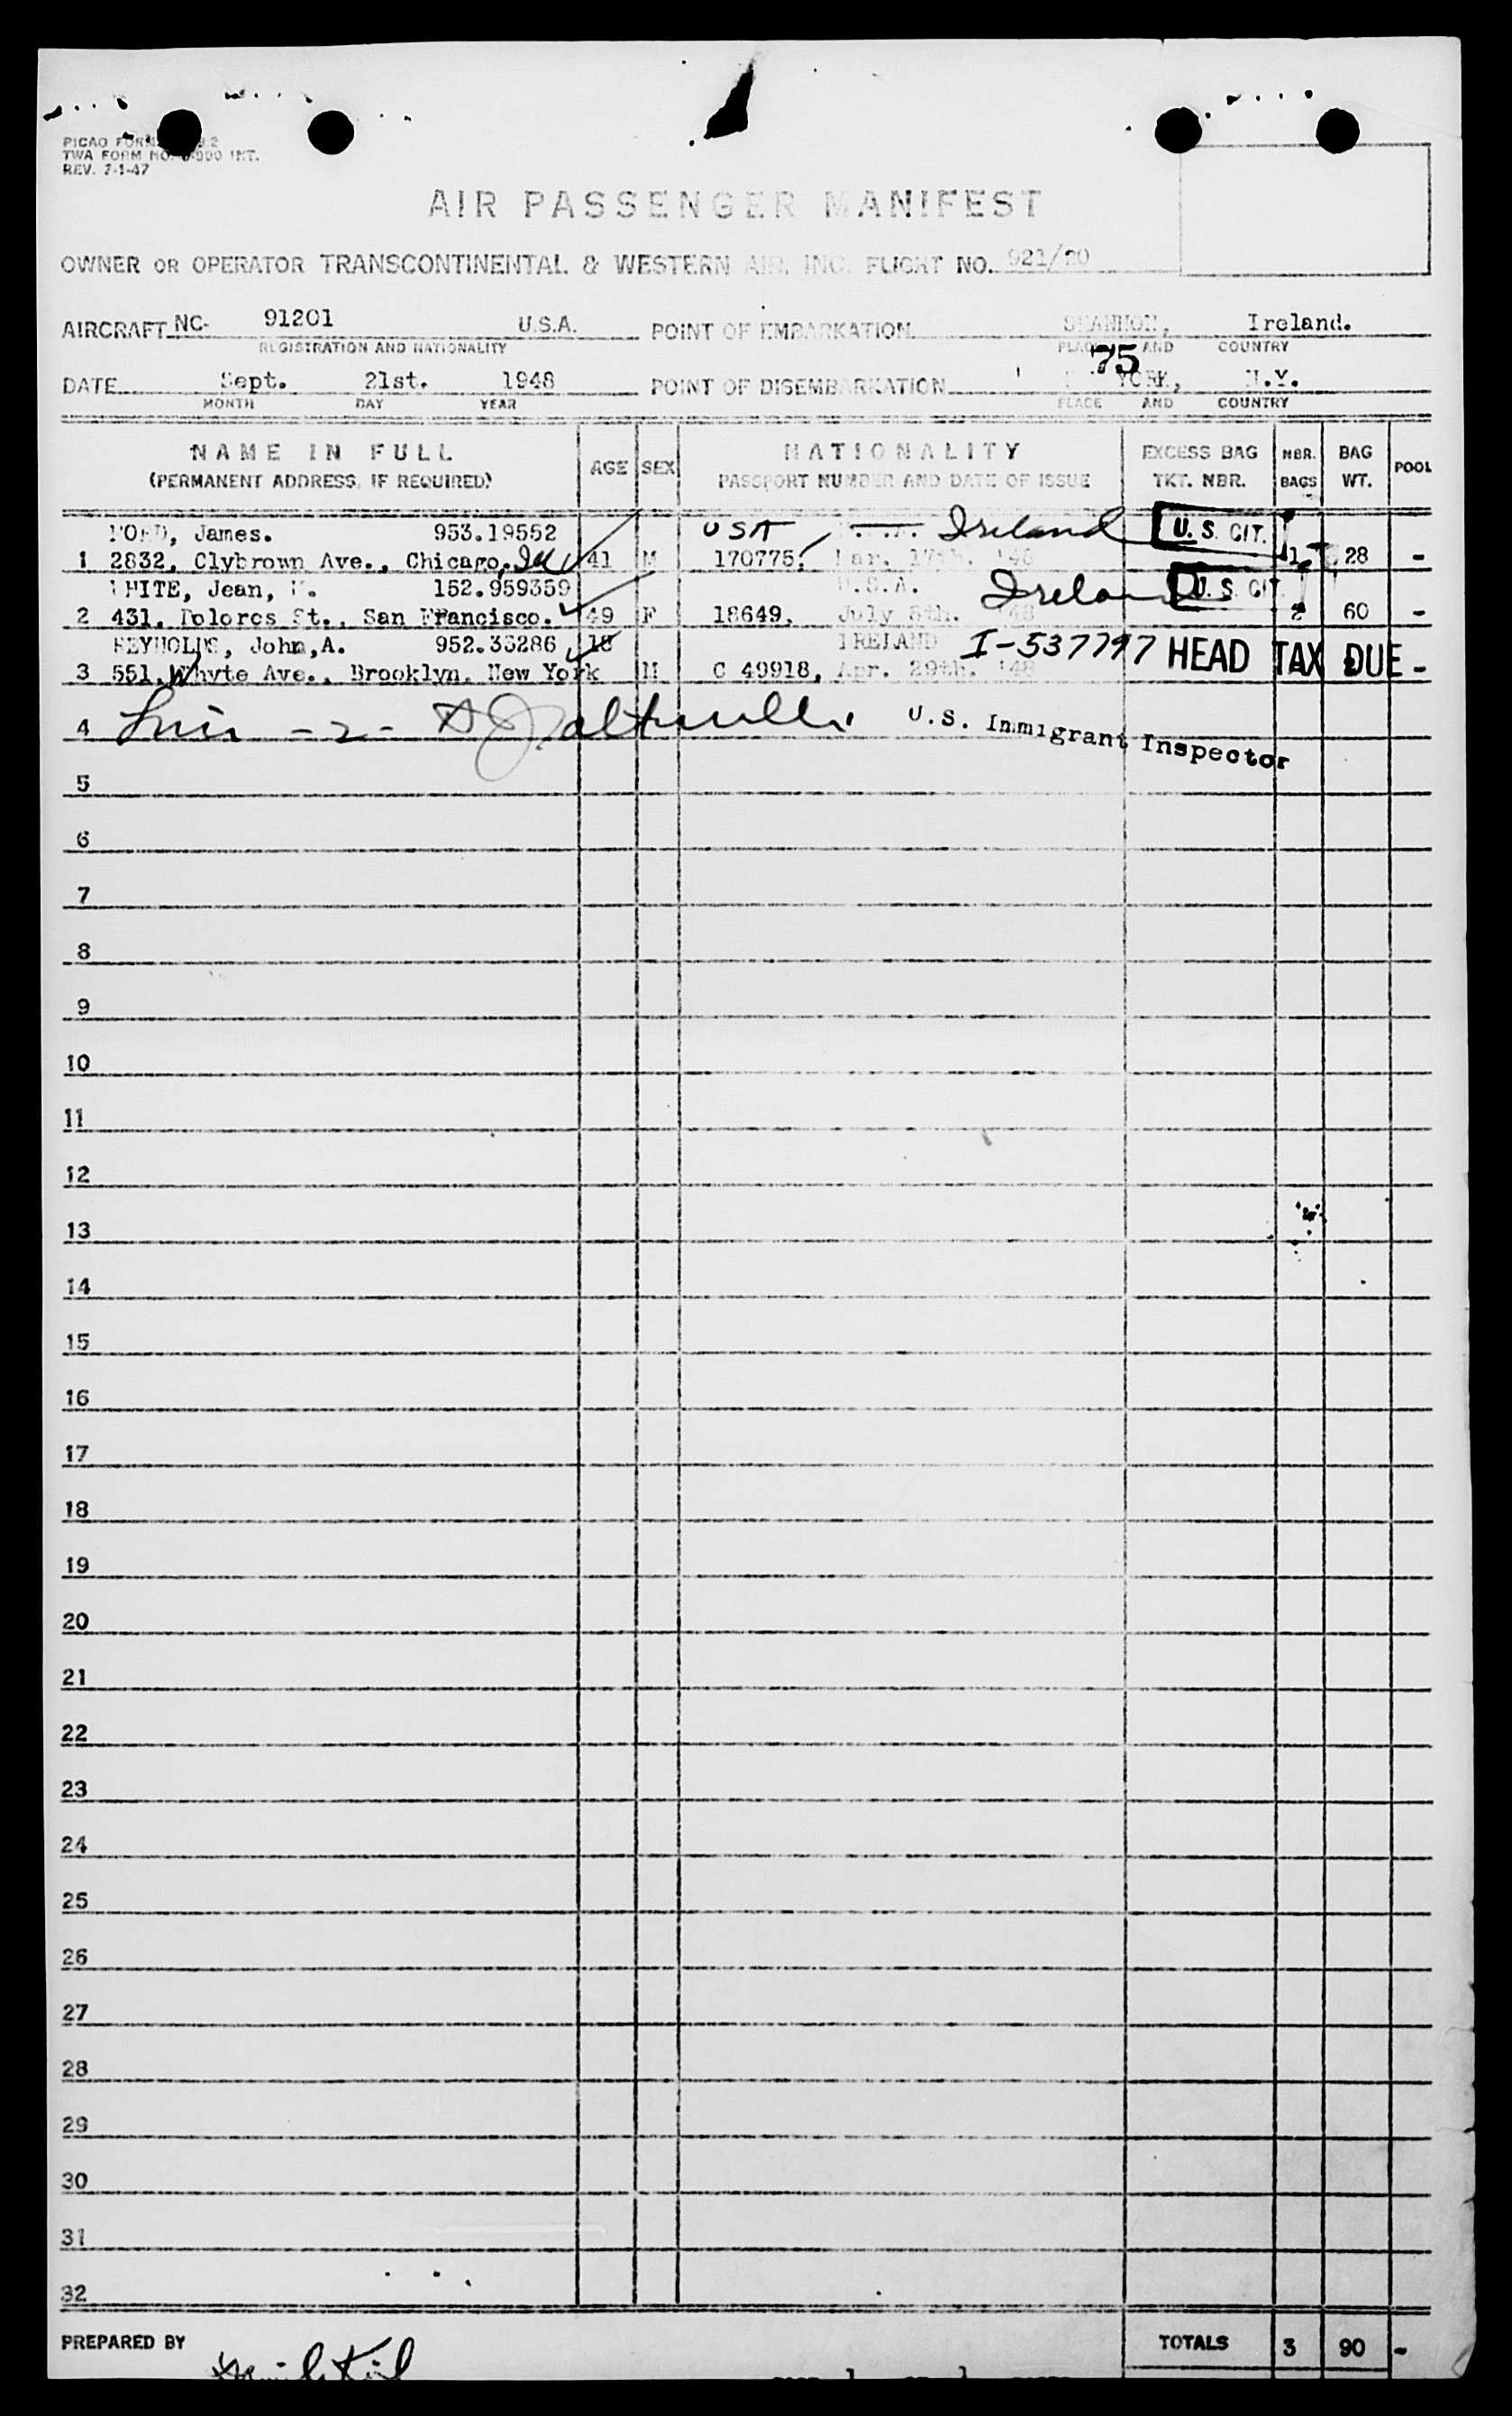 PICAO FORM 9.2
TWA FORM NO. -900 INT.
REV. 7-1-47
AIR PASSENGER MANIFEST
OWNER OR OPERATOR TRANSCONTINENTAL & WESTERN AIR, INC. FLIGHT NO. 921/20
AIRCRAFT NC- 91201 U.S.A. POINT OF EMBARKATION SHANNON, Ireland.
REGISTRATION AND NATIONALITY PLACE AND COUNTRY
75
DATE Sept. 21st. 1948 POINT OF DISEMBARKATION YORK, N.Y.
MONTH DAY YEAR PLACE AND COUNTRY
NAME IN FULL AGE SEX NATIONALITY EXCESS BAG NBR. BAG POOL
(PERMANENT ADDRESS, IF REQUIRED) PASSPORT NUMBER AND DATE OF ISSUE TKT. NBR. BAGS WT.
FORD, James. 953.19552 USA Ireland U.S. CIT.
1 2832, Clybrown Ave., Chicago, Ill 41 M 170775, Mar. 17th. '48 1 28 -
WHITE, Jean, 152.959359 U.S.A. Ireland U.S. CIT
2 431, Dolores St., San Francisco. 49 F 18649, July 8th. '48 2 60 -
REYNOLDS, John,A. 952.33286 18 IRELAND I-537797 HEAD TAX DUE
3 551, Whyte Ave., Brooklyn, New York M C 49918, Apr. 29th. '48 -
4 -2- U.S. Immigrant Inspector
5
6
7
8
9
10
11
12
13
14
15
16
17
18
19
20
21
22
23
24
25
26
27
28
29
30
31
32
PREPARED BY TOTALS 3 90 -